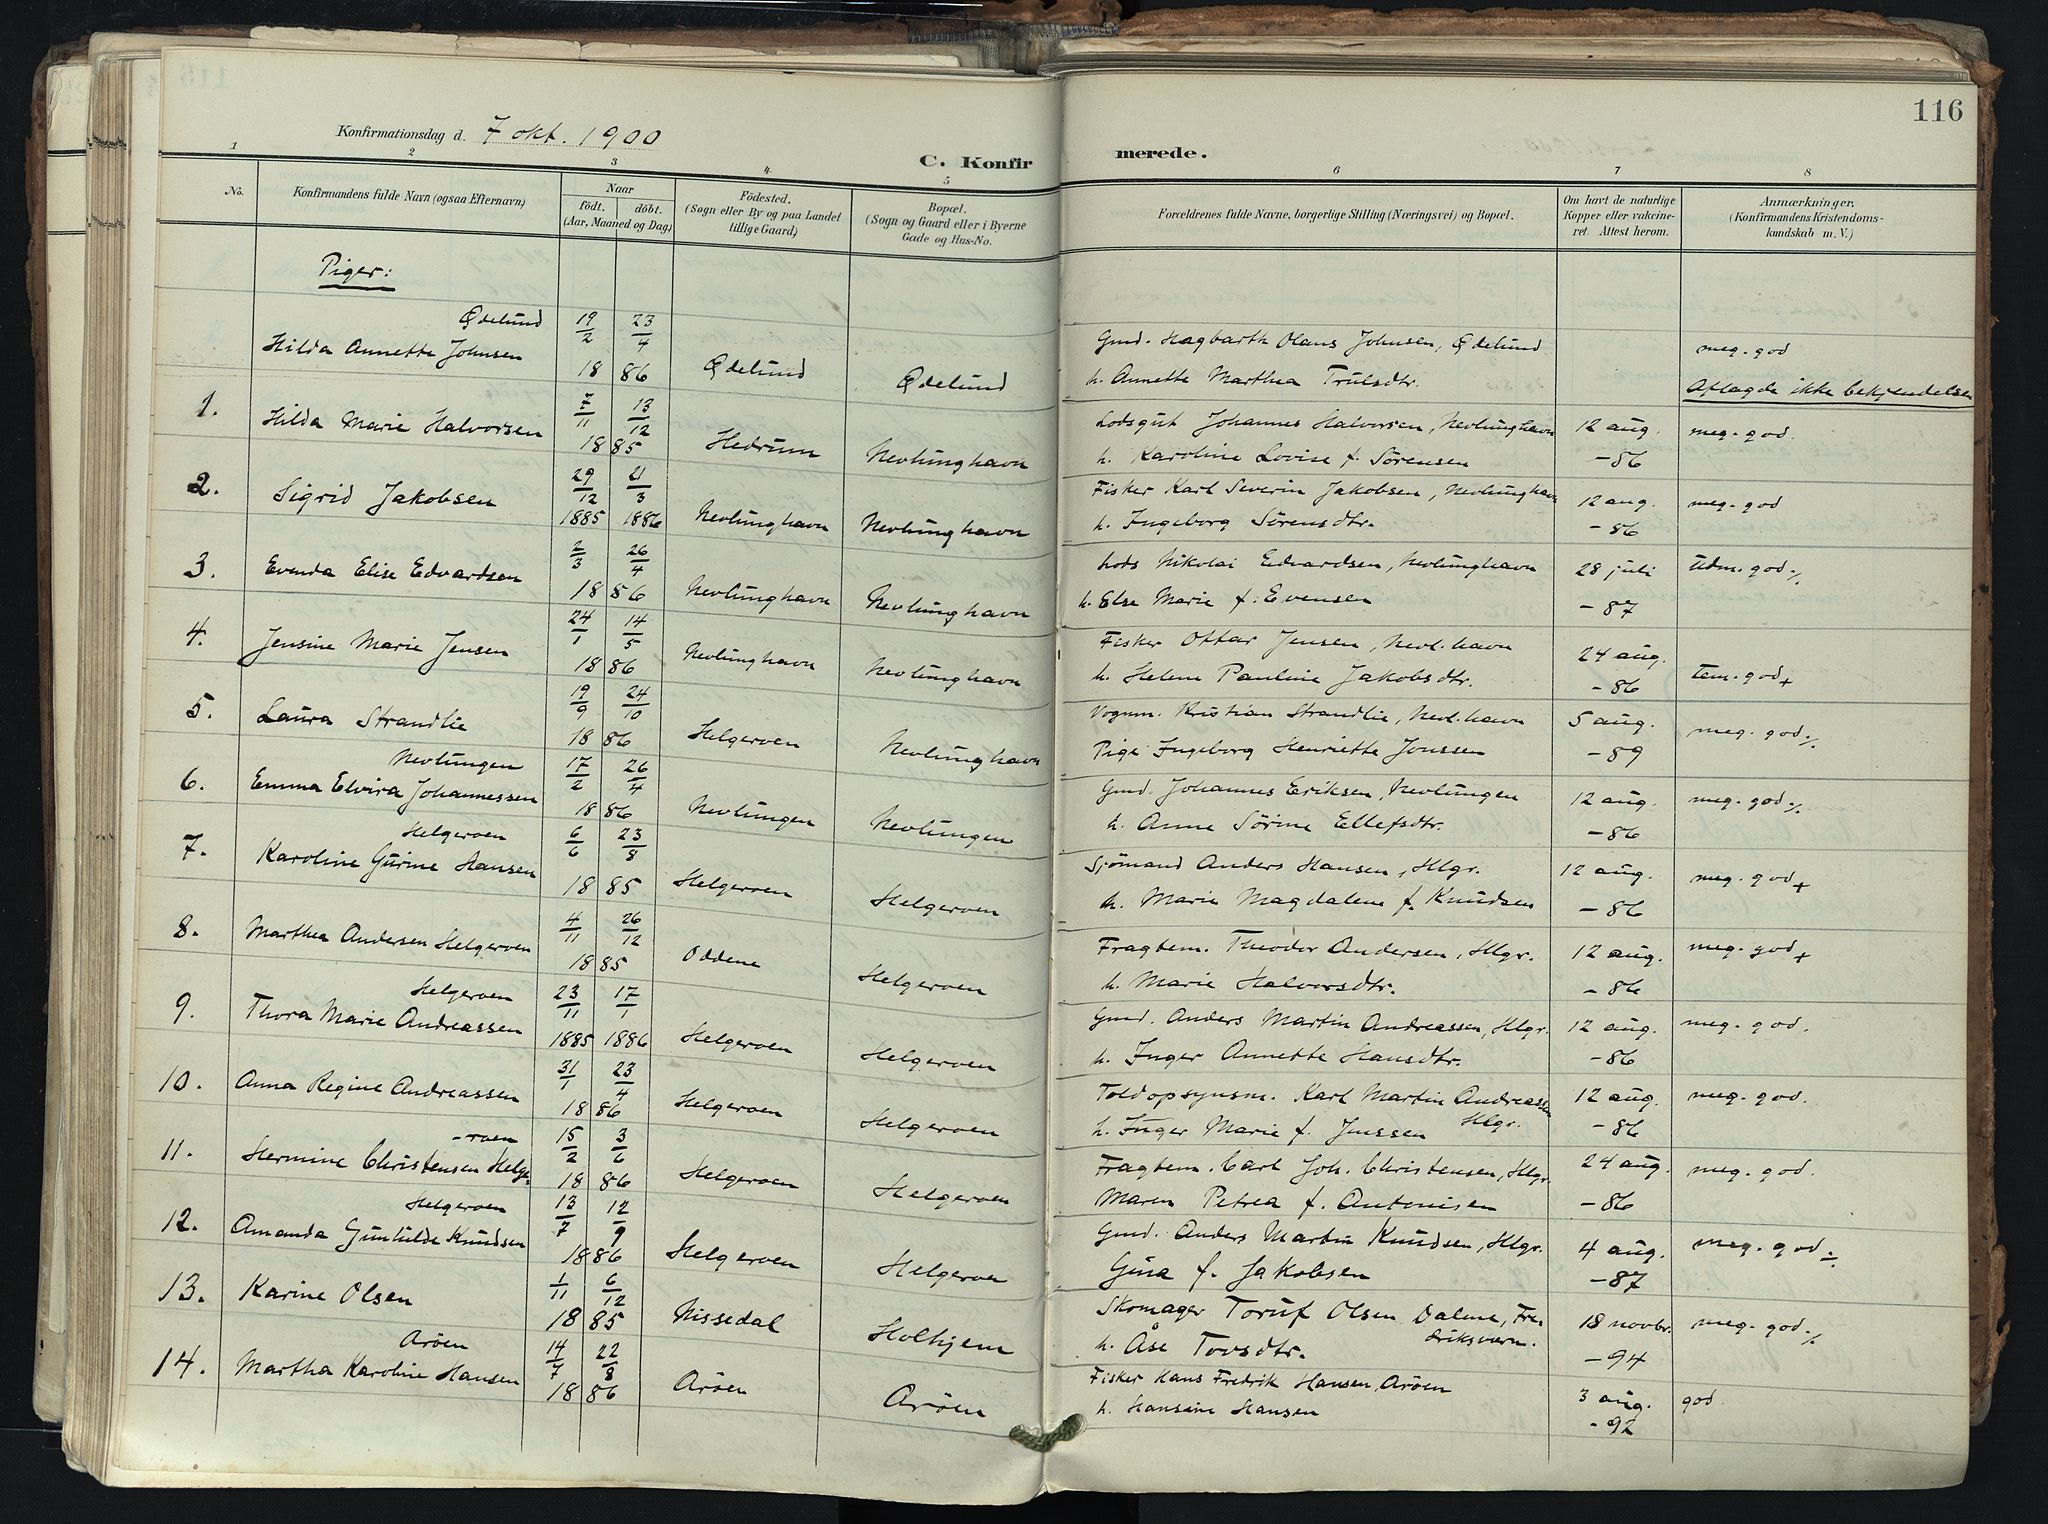 116
Konfirmationsdag d. 7 okt. 1900
C. Konfir merede.
1 2 3 4 5 6 7 8
No. Konfirmandens fulde Navn (ogsaa Efternavn) Naar födt. döbt. (Aar, Maaned og Dag) Födested. (Sogn eller By og paa Landet tillige Gaard) Bopæl. (Sogn og Gaard eller i Byerne Gade og Hus-No. Forældrenes fulde Navne, borgerlige Stilling (Næringsvei) og Bopæl. Om havt de naturlige Kopper eller vakcineret. Attest herom. Anmærkninger. (Konfirmandens Kristendomskundskab m. V.)
Piger:
Ødelund 19/2 23/4 Gmd. Hagbarth Olaus Johnsen, Ødelund meg. god
Hilda Annette Johnsen 18 86 Ødelund Ødelund h. Annette Marthea Trulsdtr. Aflagde ikke bekjendelsen
1. Hilda Marie Halvorsen 7/11 13/12 Lodsgut Johannes Halvorsen, Nevlunghavn 12 aug. meg. god.
18 85 Hedrum Nevlunghavn h. Karoline Lovise f. Sörensen -86
2. Sigrid Jakobsen 29/12 21/3 Fisker Karl Severin Jakobsen, Nevlunghavn 12 aug. meg. god
1885 1886 Nevlunghavn Nevlunghavn h. Ingeborg Sörensdtr. -86
3. Evenda Elise Edvardsen 2/3 26/4 Lods Nikolai Edvardsen, Nevlunghavn 28 juli Udm. god ./.
18 86 Nevlunghavn Nevlunghavn h. Else Marie f. Evensen -87
4. Jensine Marie Jensen 24/1 14/5 Fisker Ottar Jensen, Nevl.havn 24 aug.
18 86 Nevlunghavn Nevlunghavn h. Helene Pauline Jakobsdtr. -86 tem. god +
5. Laura Strandlie 19/9 24/10 Vognm. Kristian Strandlie, Nevl.havn 5 aug. meg. god ./.
18 86 Helgeroen Nevlunghavn Pige Ingeborg Henriette Jonssen -89
Nevlungen
6. Emma Elvira Johannessen 17/2 26/4 Gmd. Johannes Eriksen, Nevlungen 12 aug. meg. god ./.
18 86 Nevlungen Nevlungen h. Anne Sörine Ellefsdtr. -86
Helgeroen
7. Karoline Gurine Hansen 6/6 23/8 Sjömand Anders Hansen, Hlgr. 12 aug. meg. god +
18 85 Helgeroen Helgeroen h. Marie Magdalene f. Knudsen -86
8. Marthea Andersen Helgeroen 4/11 26/12 Fragtem. Theodor Andersen, Hlgr. 12 aug. meg. god +
18 85 Oddene Helgeroen h. Marie Halvorsdtr. -86
Helgeroen
9. Thora Marie Andreassen 23/11 17/1 Gmd. Anders Martin Andreassen, Hlgr. 12 aug. meg. god.
1885 1886 Helgeroen Helgeroen h. Inger Annette Hansdtr. -86
10. Anna Regine Andreassen 31/1 23/4 Toldopsynsm. Karl Martin Andreassen Hlgr. 12 aug. meg. god.
18 86 Helgeroen Helgeroen h. Inger Marie f. Jenssen -86
-roen
11. Hermine Christensen Helge- 15/2 3/6 Fragtem. Carl Joh. Christensen, Hlgr. 24 aug. meg. god.
18 86 Helgeroen Helgeroen Maren Petrea f. Antonisen -86
Helgeroen
12. Amanda Gunhilde Knudsen 13/7 12/9 Gmd. Anders Martin Knudsen, Hlgr. 4 aug. meg. god ÷
18 86 Helgeroen Helgeroen Gina f. Jakobsen -87
13. Karine Olsen 1/11 6/12 Skomager Toruf Olsen Dalene, Fredriksværn. 18 novbr. meg. god ./.
18 85 Nissedal Holhjem h. Åse Tovsdtr. -94
Aröen
14. Martha Karoline Hansen 14/7 22/8 Fisker Hans Fredrik Hansen, Aröen 3 aug. god.
18 86 Aröen Aröen h. Hansine Hansen -92